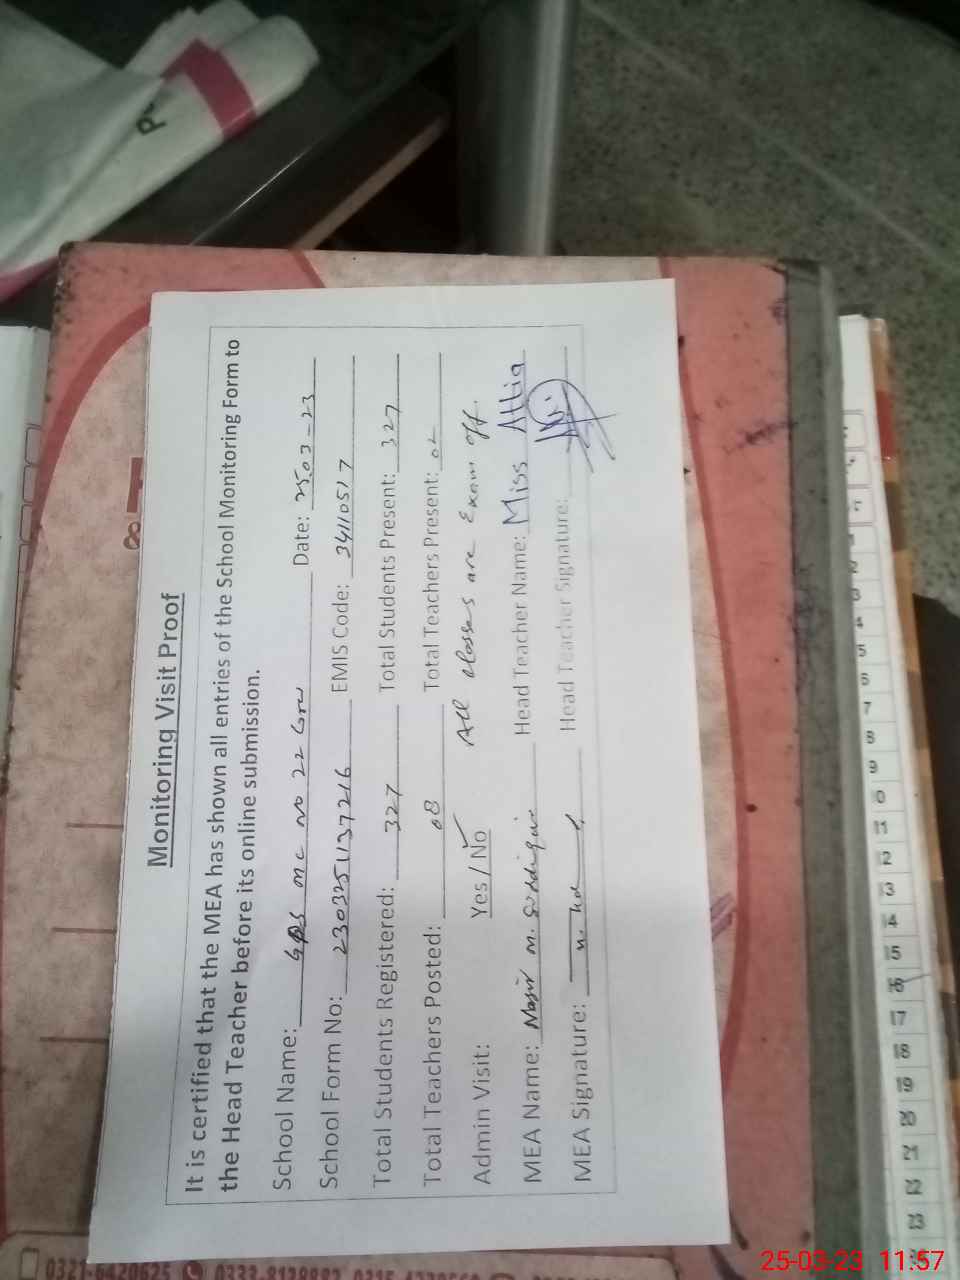 Monitoring Visit Proof
It is certified that the MEA has shown all entries of the School Monitoring Form to
the Head Teacher before its online submission.
School Name: GPS MC NO 22 Date: 25.03-23
School Form No: 2303251137216 EMIS Code: 34110517
Total Students Registered: 327 Total Students Present: 327
Total Teachers Posted: 08 Total Teachers Present: 02
Admin Visit: Yes / No All classes are Exam off.
MEA Name: M. Siddique Head Teacher Name: Miss Attia
MEA Signature: Head Teacher Signature:
P
&
0321-6420625
1
2
3
4
5
6
7
8
9
0
11
12
13
14
15
16
17
18
19
20
21
22
23
25-03-23 11:57